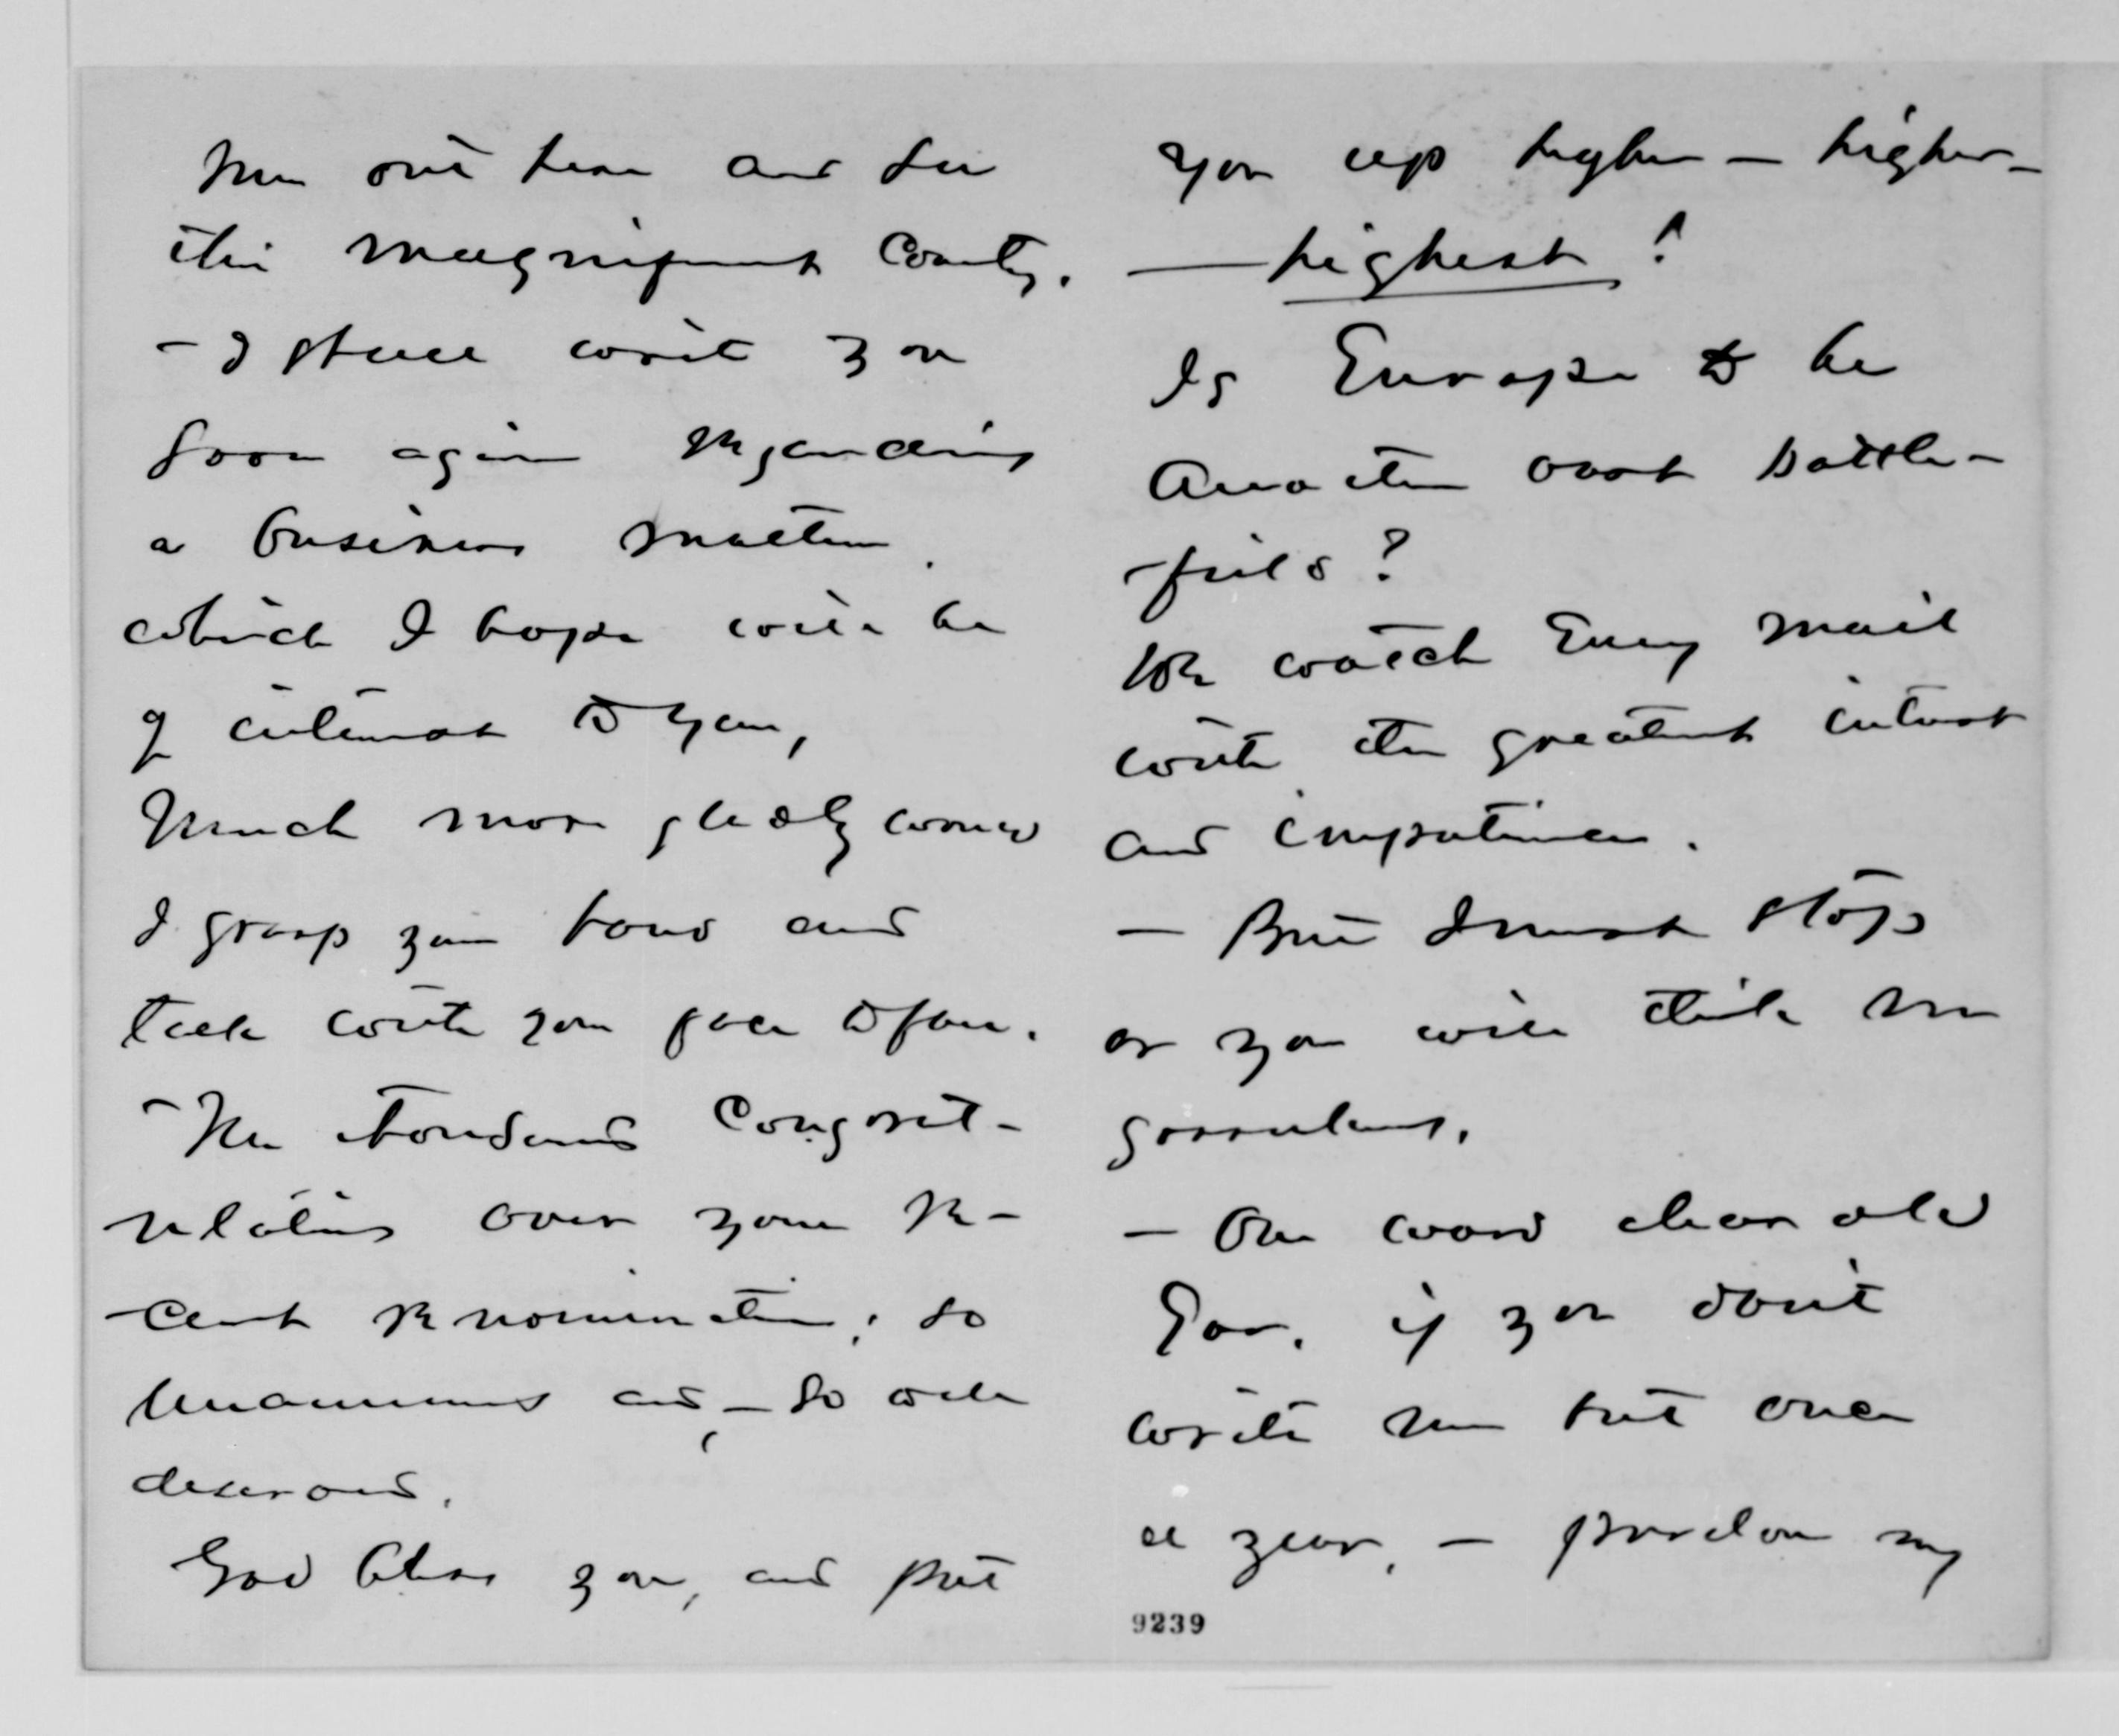 me out here and see
this magnificent County.
- I shall write you
soon again regarding
a business matter.
which I hope will be
of interest to you,
Much more gladly would
I grasp your hand and
talk with you face to face.
- Ten thousand Congrat-
ulations over your re-
-cent renomination; so
unanimous and, - so well
deserved.
God bless you, and put
you up higher - higher -
- highest!
Is Europe to be
another vast battle-
-field?
We watch Every mail
with the greatest interest
and impatience.
- But I must stop
or you will think me
garrulous.
- One word dear old
Gov. if you don't
write me but once
a year, - pardon my
9239